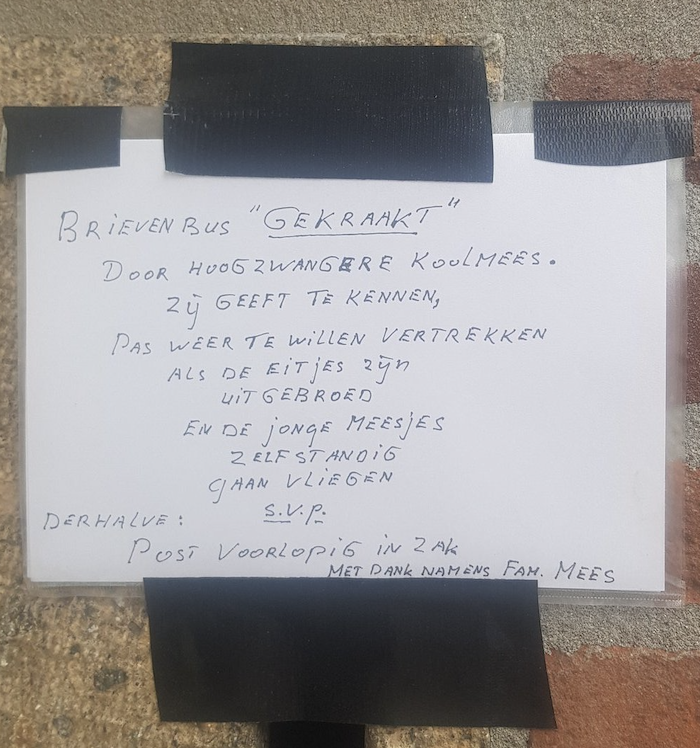 BRIEVENBUS "GEKRAAKT"
DOOR HOOGZWANGERE KOOLMEES.
ZIJ GEEFT TE KENNEN,
PAS WEER TE WILLEN VERTREKKEN
ALS DE EITJES ZIJN
UITGEBROED
EN DE JONGE MEESJES
ZELFSTANDIG
GAAN VLIEGEN
S.V.P.
DERHALVE:
POST VOORLOPIG IN ZAK
MET DANK NAMENS FAM. MEES